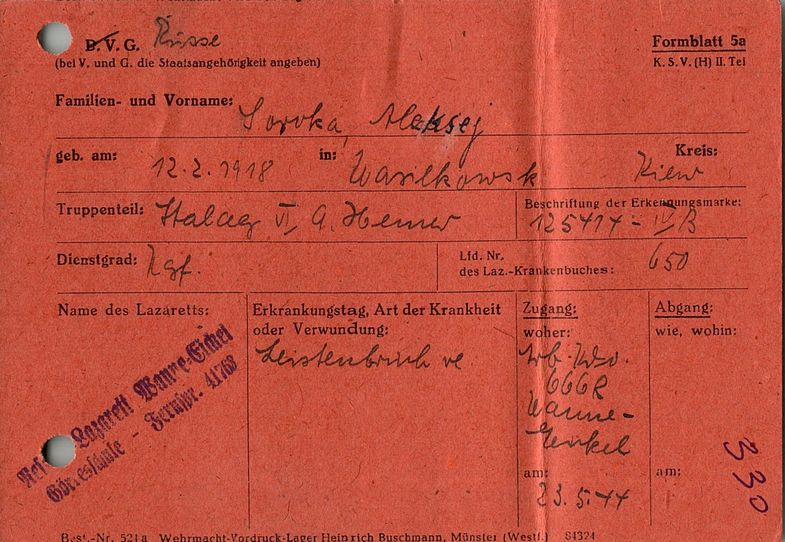 B.V.G. Russe
Formblatt 5a
(bei V. und G. die Staatsangehörigkeit angeben)
K. S. V. (H) II. Teil
Familien- und Vorname:
Sorvka, Aleksej
geb. am: 12.2.1918 in: Wasilkowsk Kreis: Kiew
Truppenteil: Stalag VI A. Hemer
Beschriftung der Erkennungsmarke:
125414 - IV B
Dienstgrad: Kgf.
Lfd. Nr.
des Laz.-Krankenbuches: 650
Name des Lazaretts:
Lazarett Wanne-Eickel
Görresschule - Fernspr. 41768
Erkrankungstag, Art der Krankheit
oder Verwundung:
Leistenbruch re
Zugang:
woher:
Arb. Kdo.
666R
Wanne-
Eickel
am:
23.5.44
Abgang:
wie, wohin:
am:
330
Best.-Nr. 521a Wehrmacht-Vordruck-Lager Heinrich Buschmann, Münster (Westf.) 84324